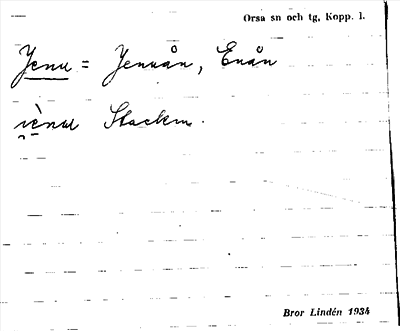 Orsa sn och tg, Kopp. l.
Jenu = Jenuån, Enån
Stackm.
Bror Lindén 1934